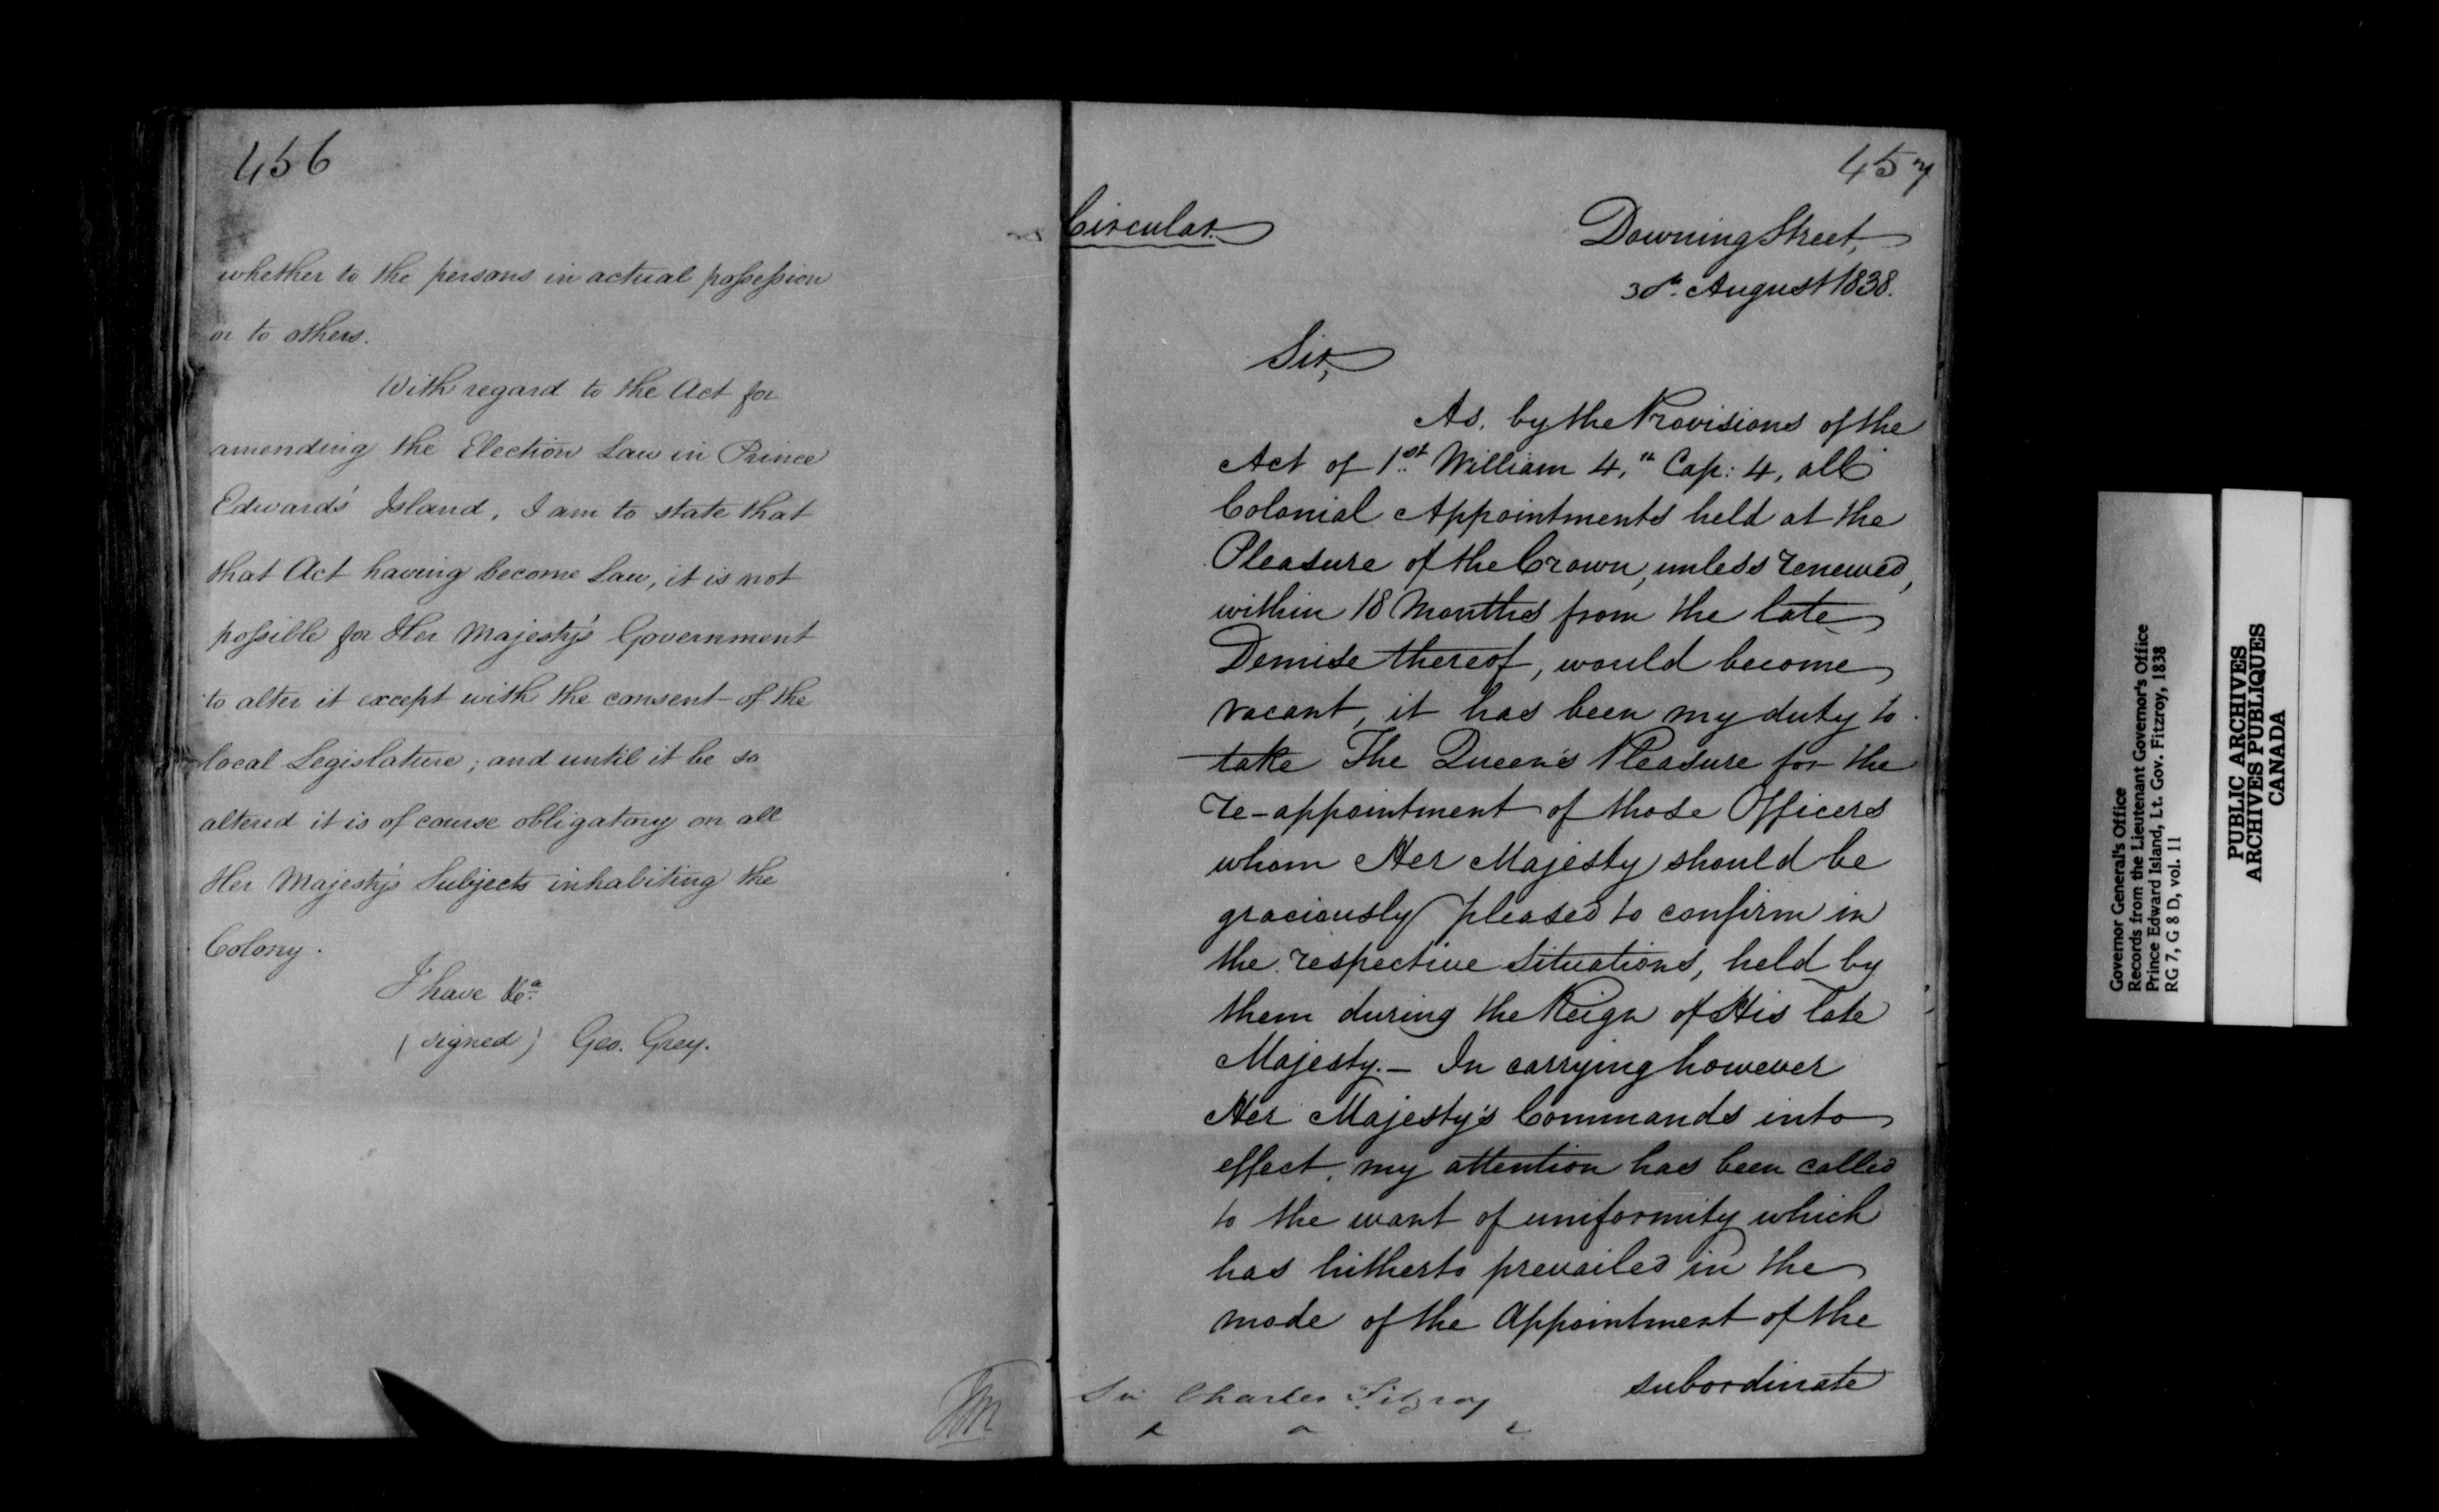 456
whether to the persons in actual possession
or to others.
With regard to the Act for
amending the Election Law in Prince
Edward's Island, I am to state that
that Act having become Law, it is not
possible for Her Majesty's Government
to alter it except with the consent of the
local Legislature; and until it be so
altered it is of course obligatory on all
Her Majesty's Subjects inhabiting the
Colony.
I have &ca
(signed) Geo. Grey.
457
Circular.
Downing Street,
30th August 1838.
Sir,
As, by the Provisions of the
Act of 1st William 4,th Cap: 4, all
Colonial Appointments held at the
Pleasure of the Crown, unless renewed,
within 18 Months from the late
Demise thereof, would become
vacant, it has been my duty to
take The Queen's Pleasure for the
re-appointment of those Officers
whom Her Majesty should be
graciously pleased to confirm in
the respective Situations, held by
them during the Reign of His late
Majesty.— In carrying however
Her Majesty's Commands into
effect, my attention has been called
to the want of uniformity which
has hitherto prevailed in the
mode of the Appointment of the
subordinate
Sir Charles Fitzroy
Governor General's Office
Records from the Lieutenant Governor's Office
Prince Edward Island, Lt. Gov. Fitzroy, 1838
RG 7, G 8 D, vol. 11
PUBLIC ARCHIVES
ARCHIVES PUBLIQUES
CANADA